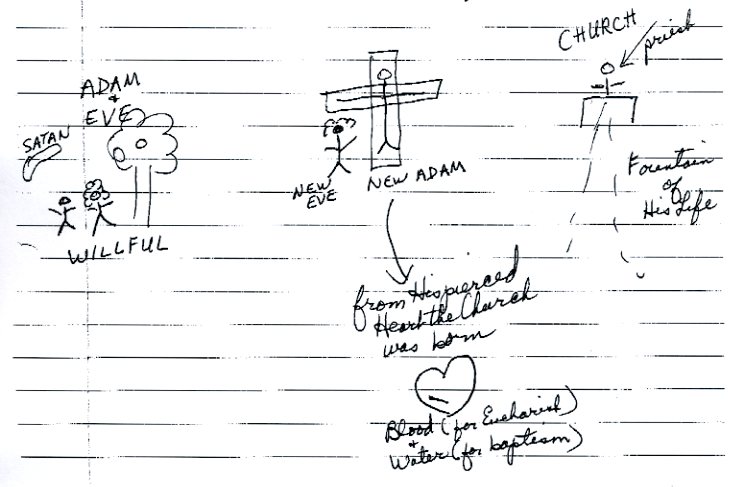 ADAM
&
EVE
SATAN
WILLFUL
NEW
EVE
NEW ADAM
from His pierced
Heart the Church
was born
Blood (for Eucharist)
+
Water (for baptism)
CHURCH
priest
Fountain
of
His Life